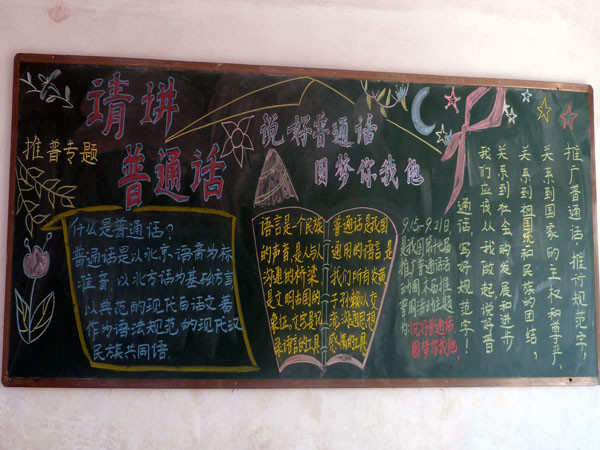 请讲
普通话
推普专题
说好普通话
圆梦你我他
什么是普通话?
普通话是以北京语音为标
准音,以北方话为基础方言
以典范的现代白话文著
作为语法规范的现代汉
民族共同语.
语言是一个民族
的声音,是人与人
沟通的桥梁
是文明古国的
象征。文字是记
录语言的工具
普通话是我国
通用的语言是
我们所有炎黄
子孙
9.15-9.21日
说好普通话
圆梦你我他.
推广普通话,推行规范字,
关系到国家的主权和尊严,
关系到祖国和民族的团结,
关系到社会的发展和进步
我们应该从我做起说好普
通话,写好规范字!